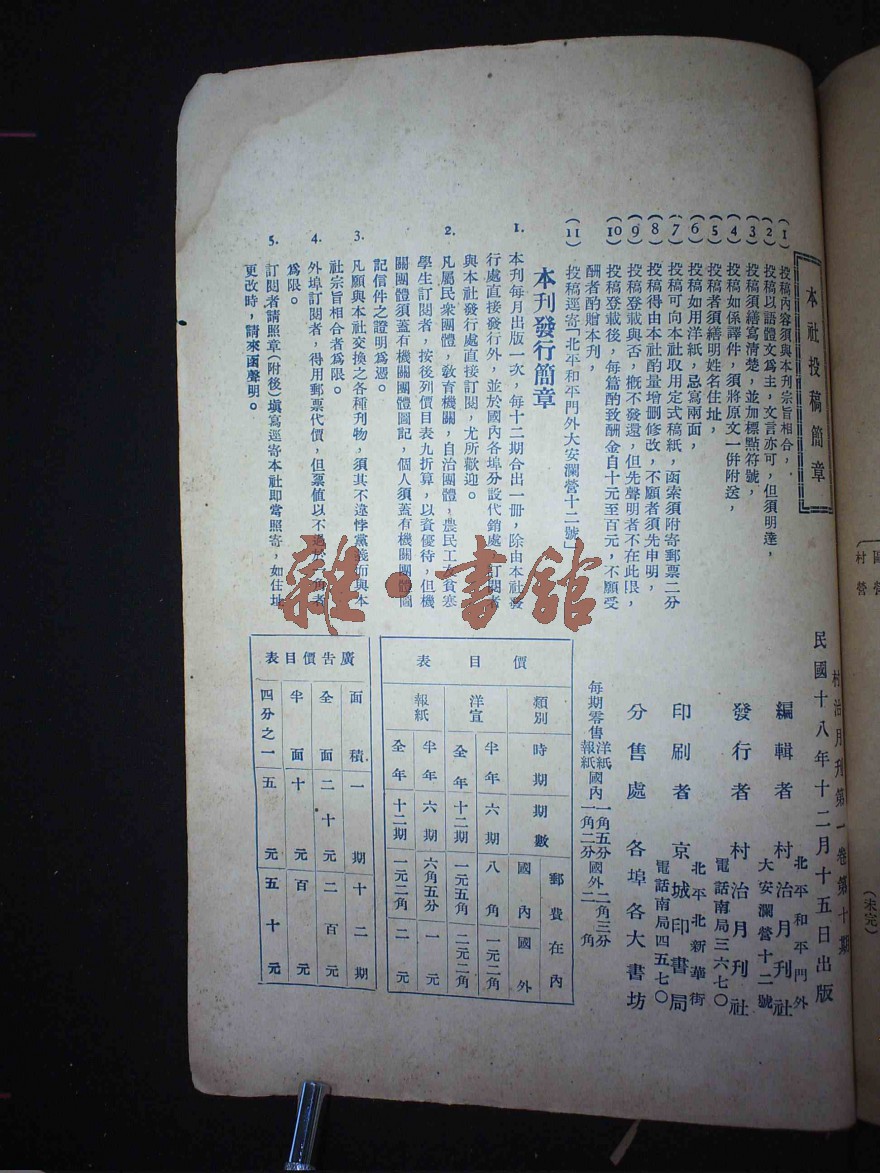 本社投稿簡章
(1) 投稿內容須與本刊宗旨相合，
(2) 投稿以語體文爲主，文言亦可，但須明達，
(3) 投稿須繕寫清楚，並加標點符號，
(4) 投稿如係譯件，須將原文一併附送，
(5) 投稿者須繕明姓名住址，
(6) 投稿如用洋紙，忌寫兩面，
(7) 投稿可向本社取用定式稿紙，函索須附寄郵票二分
(8) 投稿得由本社酌量增删修改，不願者須先申明，
(9) 投稿登載與否，概不發還，但先聲明者不在此限，
(10) 投稿登載後，每篇酌致酬金自十元至百元，不願受
酬者酌贈本刊，
(11) 投稿逕寄「北平和平門外大安瀾營十二號」
本刊發行簡章
1. 本刊每月出版一次，每十二期合出一册，除由本社發
行處直接發行外，並於國內各埠分設代銷處，訂閱者
與本社發行處直接訂閱，尤所歡迎。
2. 凡屬民衆團體，敎育機關，自治團體，農民工友貧寒
學生訂閱者，按後列價目表九折算，以資優待，但機
關團體須蓋有機關團體圖記，個人須蓋有機關團體圖
記信件之證明爲憑。
3. 凡願與本社交換之各種刊物，須其不違悖黨義而與本
社宗旨相合者爲限。
4. 外埠訂閱者，得用郵票代價，但票値以不過於一角者
爲限。
5. 訂閱者請照章(附後)填寫逕寄本社即當照寄，如住址
更改時，請來函聲明。
村治月刊第一卷第十期
民國十八年十二月十五日出版
編輯者 村治月刊社
北平和平門外
大安瀾營十二號
發行者 村治月刊社
電話南局三六七〇
印刷者 京城印書局
北平北新華街
電話南局四五七〇
分售處 各埠各大書坊
每期零售 洋紙國內一角五分國外二角三分
報紙國內一角二分國外二角
價目表
類別 時期 期數 郵費在內 國內 國外
洋宣 半年 六期 八角 一元二角
全年 十二期 一元五角 二元二角
報紙 半年 六期 六角五分 一元
全年 十二期 一元二角 二元
廣告價目表
面積 一期 十二期
全面 二十元 二百元
半面 十元 百元
四分之一 五元 五十元
(未完)
村營
雜·書館